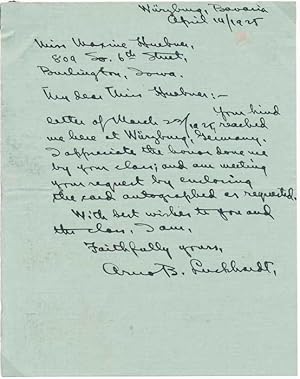 Würzburg, Bavaria
April 14/1925
Miss Maxine Huebner,
809 So. 6th Street,
Burlington, Iowa.
My dear Miss Huebner:-
Your kind
letter of March 22/1925 reached
me here at Würzburg, Germany.
I appreciate the honor done me
by your class; and am meeting
your request by enclosing
the card autographed as requested.
With best wishes to you and
the class, I am,
Faithfully yours,
Arno B. Luckhardt.